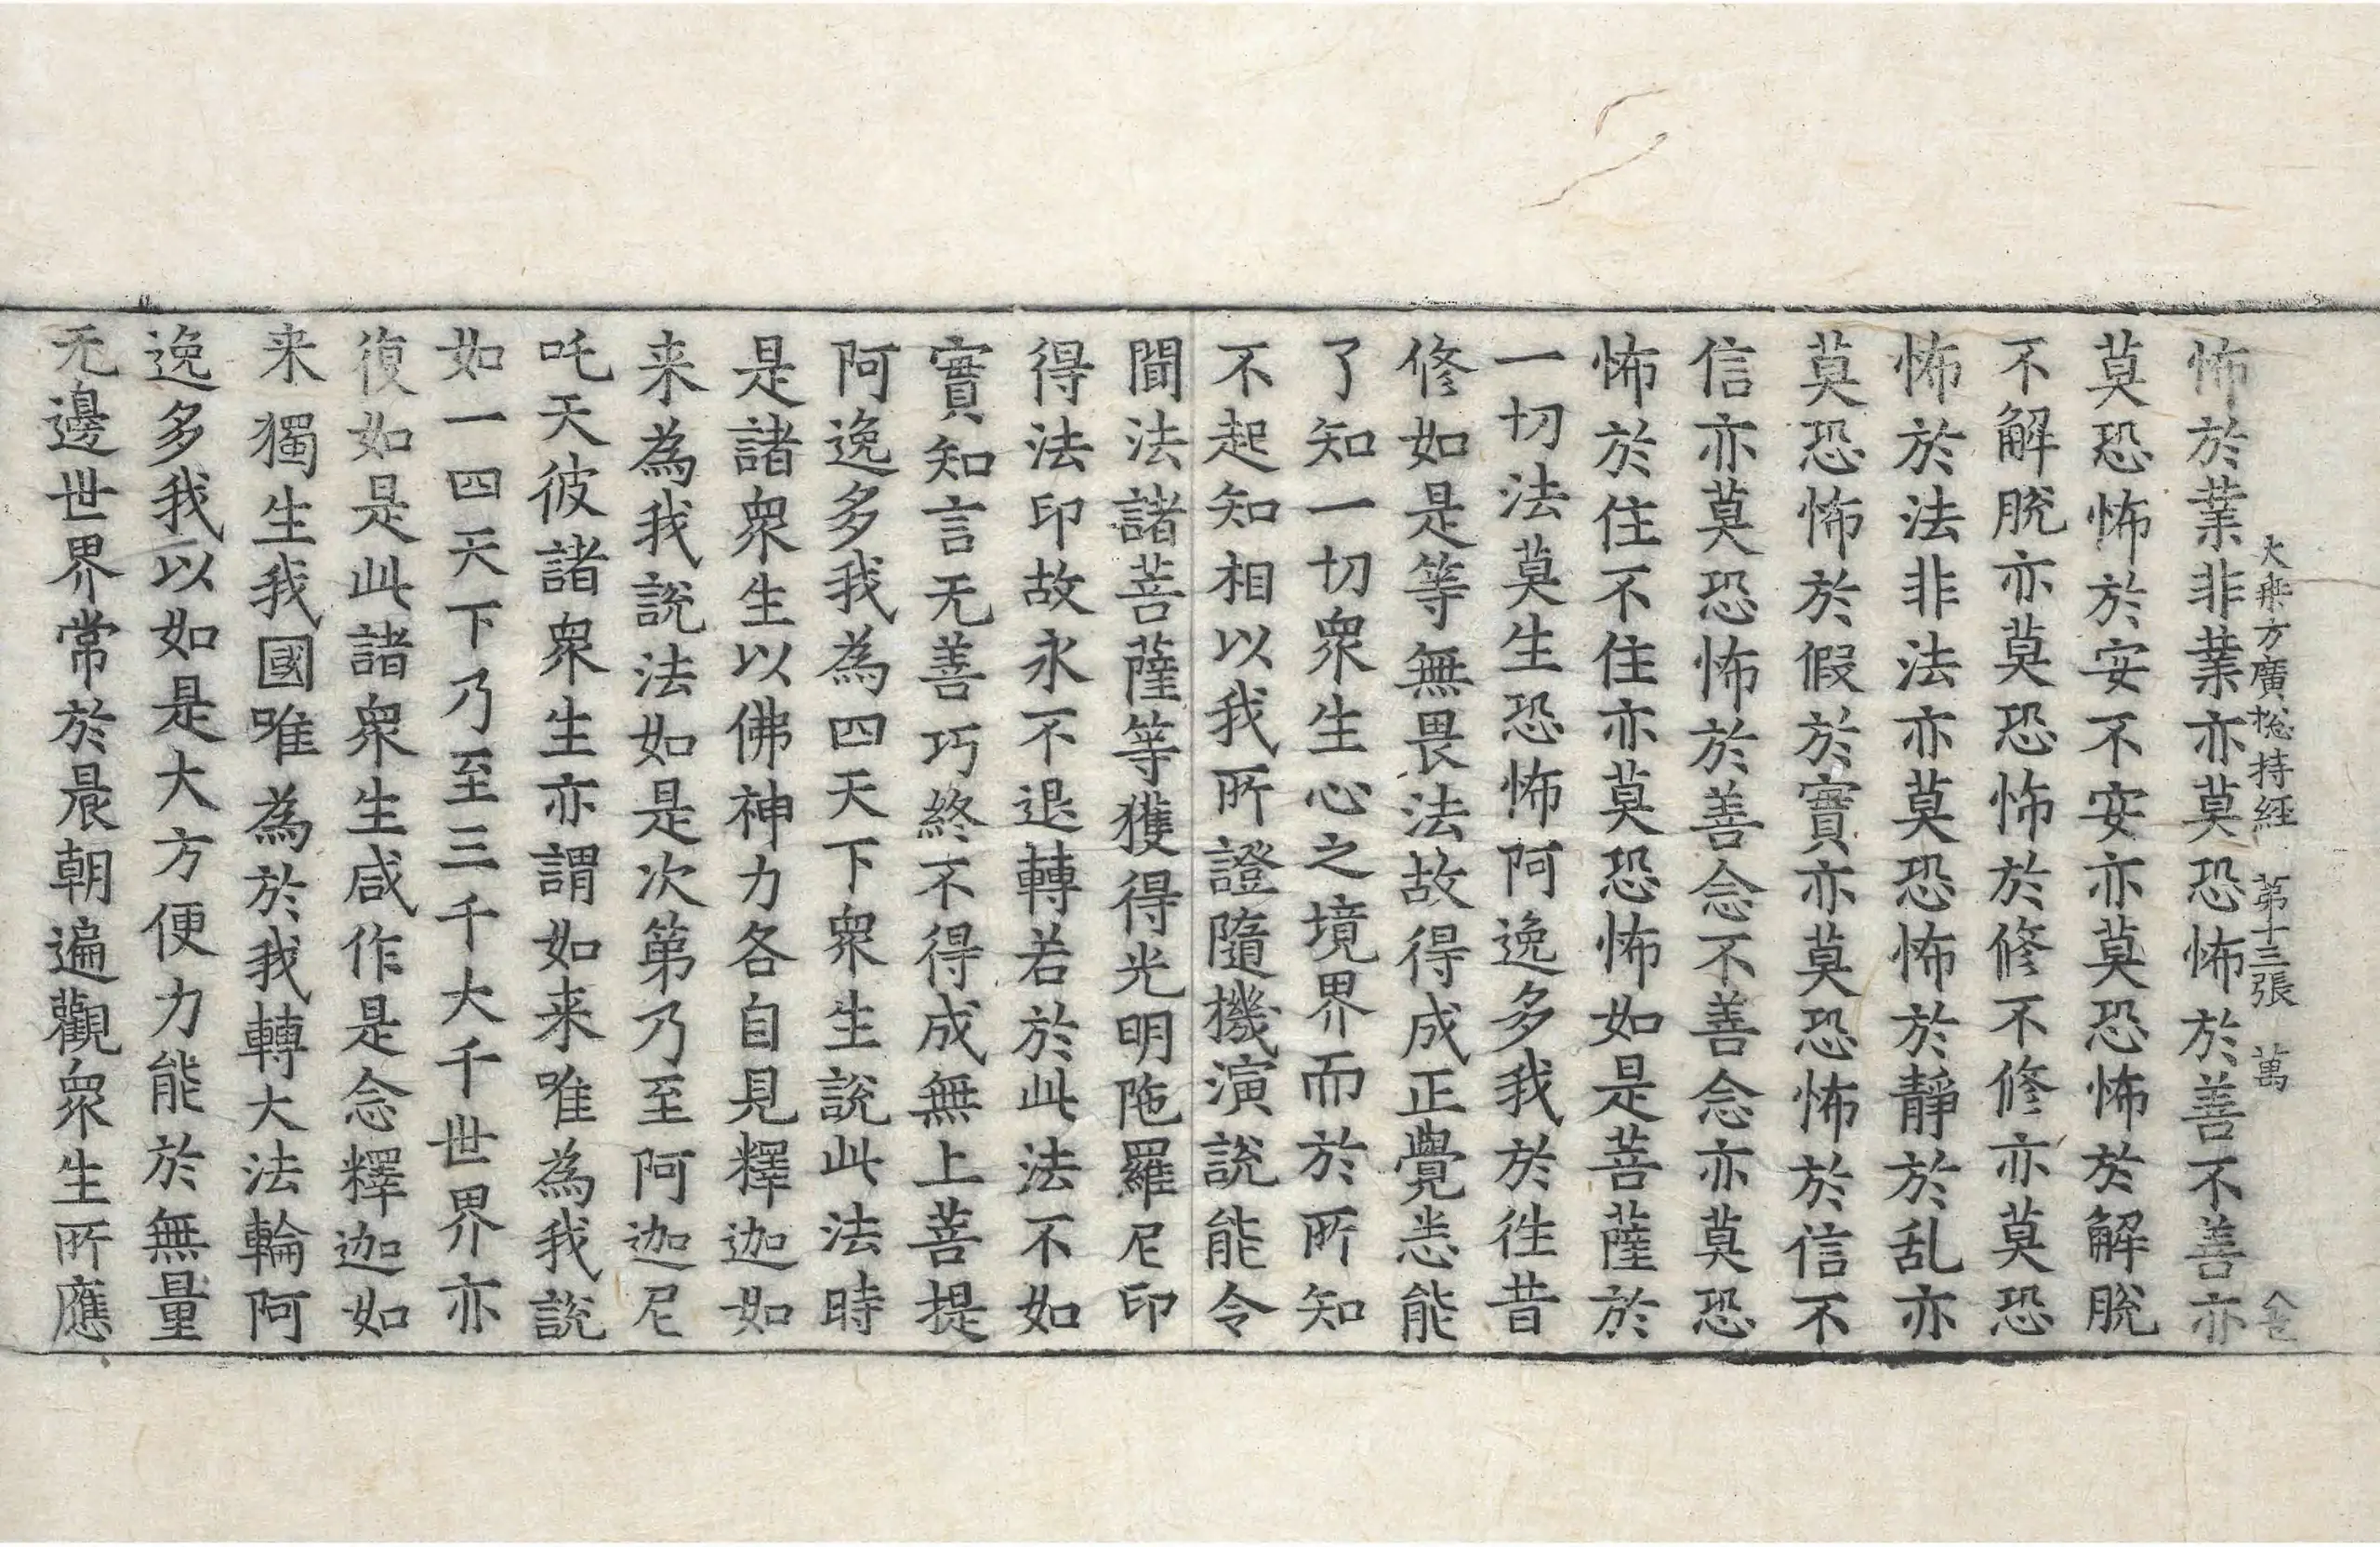 大乗方廣揔持經 第十三張 萬
怖於業非業亦莫恐怖於善不善亦
莫恐怖於安不安亦莫恐怖於解脫
不解脫亦莫恐怖於修不修亦莫恐
怖於法非法亦莫恐怖於靜於乱亦
莫恐怖於假於實亦莫恐怖於信不
信亦莫恐怖於善念不善念亦莫恐
怖於住不住亦莫恐怖如是菩薩於
一切法莫生恐怖阿逸多我於往昔
修如是等無畏法故得成正覺悉能
了知一切衆生心之境界而於所知
不起知相以我所證隨機演說能令
聞法諸菩薩等獲得光明陁羅尼印
得法印故永不退轉若於此法不如
實知言无善巧終不得成無上菩提
阿逸多我為四天下衆生說此法時
是諸衆生以佛神力各自見釋迦如
来為我說法如是次第乃至阿迦尼
吒天彼諸衆生亦謂如来唯為我說
如一四天下乃至三千大千世界亦
復如是此諸衆生咸作是念釋迦如
来獨生我國唯為於我轉大法輪阿
逸多我以如是大方便力能於無量
无邊世界常於晨朝遍觀衆生所應